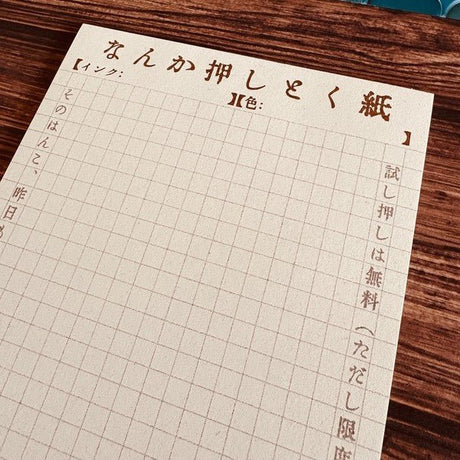 なんか押しとく紙
【インク:
】【色:
】
試し押しは無料(ただし限度
そのはんこ、昨日も